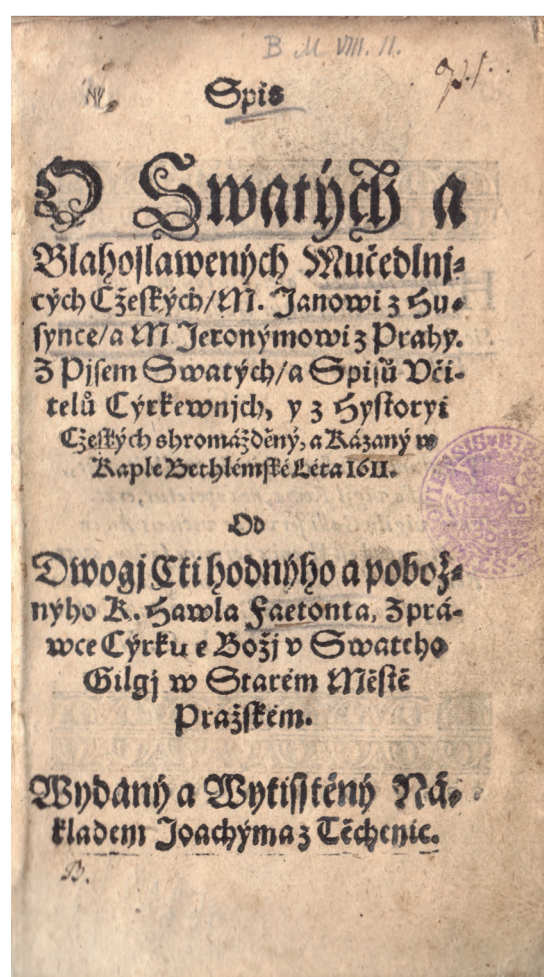 B M VIII. 11.
Spis
O Swatých a
Blahoslawených Mučedlnj⸗
cých Cžeských/ M. Janowi z Hu⸗
synce/ a M Jeronýmowi z Prahy.
Z Pjsem Swatých/ a Spisů Včі⸗
telů Cýrkewnjch, y z Hystoryi
Cžeských shromážděný, a Kázaný w
Kaple Bethlémské Léta 1611.
Od
Dwogj Cti hodnýho a pobož⸗
nýho K. Hawla Faetonta, Zprá⸗
wce Cýrku e Božj v Swateho
Gilgj w Starém Městě
Pražském.
Wydaný a Wytisstěný Ná⸗
kladem Joachýma z Těchenic.
B.